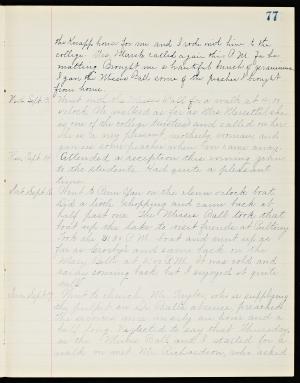 77
the Knapp house for me and I rode with him to the
college. Mrs. called again this P.M. for her
matting. Brought me a beautiful bunch of geraniums.
I gave the Misses Ball some of the peaches I brought
from home.
Went with the Misses Ball for a walk at 4:00
o'clock. We walked as far as Mrs. and called on her.
is one of the college and called on her.
She is a very pleasant, motherly woman and
gave us some peaches when we came away.
Attended a reception this evening given
to the students. Had quite a pleasant
time.
Sat. Sept. 16 Went to Ann on the eleven o'clock boat,
did a little shopping and came back at
half past one. The Misses Ball took that
boat up the lake to meet friends at
Took the 4:30 P.M. boat and went up as
far as and came back on the
Mary Bell at P.M. It was cold and
coming back but I enjoyed it quite
well.
Sun. Sept. 17 Went to church. Mr. Taylor, who is supplying
the pulpit in Dr. absence, preached.
The service was nearly an hour and a
half long. Neglected to say that Thursday,
as the Misses Ball and I started for a
walk we met Mr. Richardson, who asked